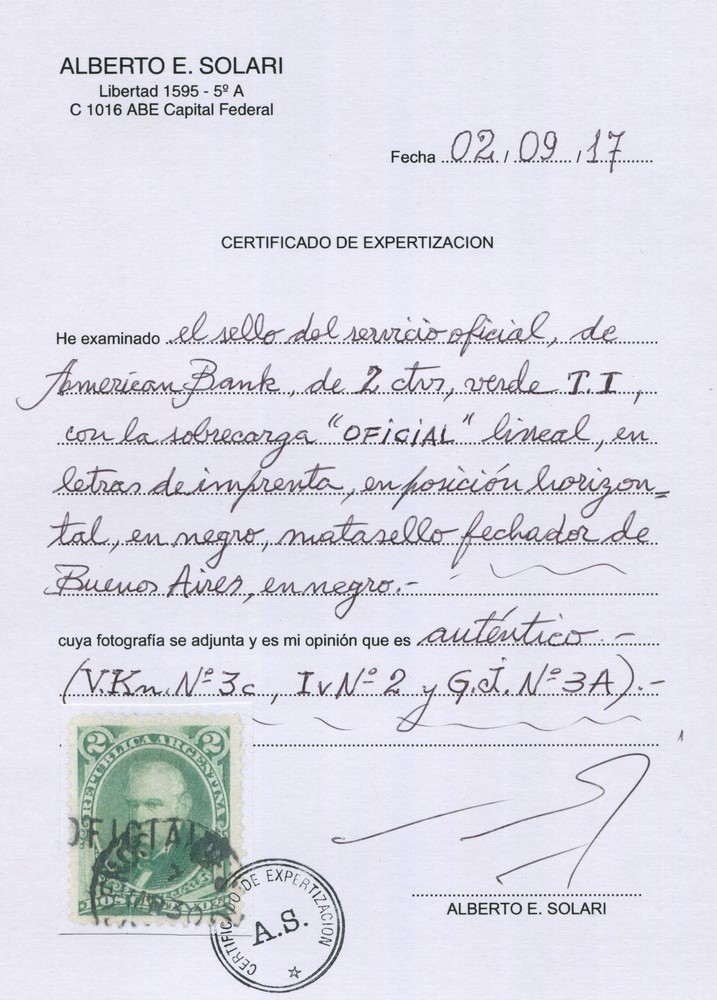 ALBERTO E. SOLARI
Libertad 1595 - 5º A
C 1016 ABE Capital Federal
Fecha 02 / 09 / 17
CERTIFICADO DE EXPERTIZACION
He examinado el sello del servicio oficial, de
American Bank, de 2 ctvs, verde T.I,
con la sobrecarga "OFICIAL" lineal, en
letras de imprenta, en posición horizon=
tal, en negro, matasello fechador de
Buenos Aires, en negro.-
cuya fotografía se adjunta y es mi opinión que es auténtico.-
(V.Kn. Nº 3c, Iv Nº 2 y G.J. Nº 3A).-
2 2
REPUBLICA ARGENTINA
OFICIAL
CERTIFICADO DE EXPERTIZACION
A.S.
ALBERTO E. SOLARI